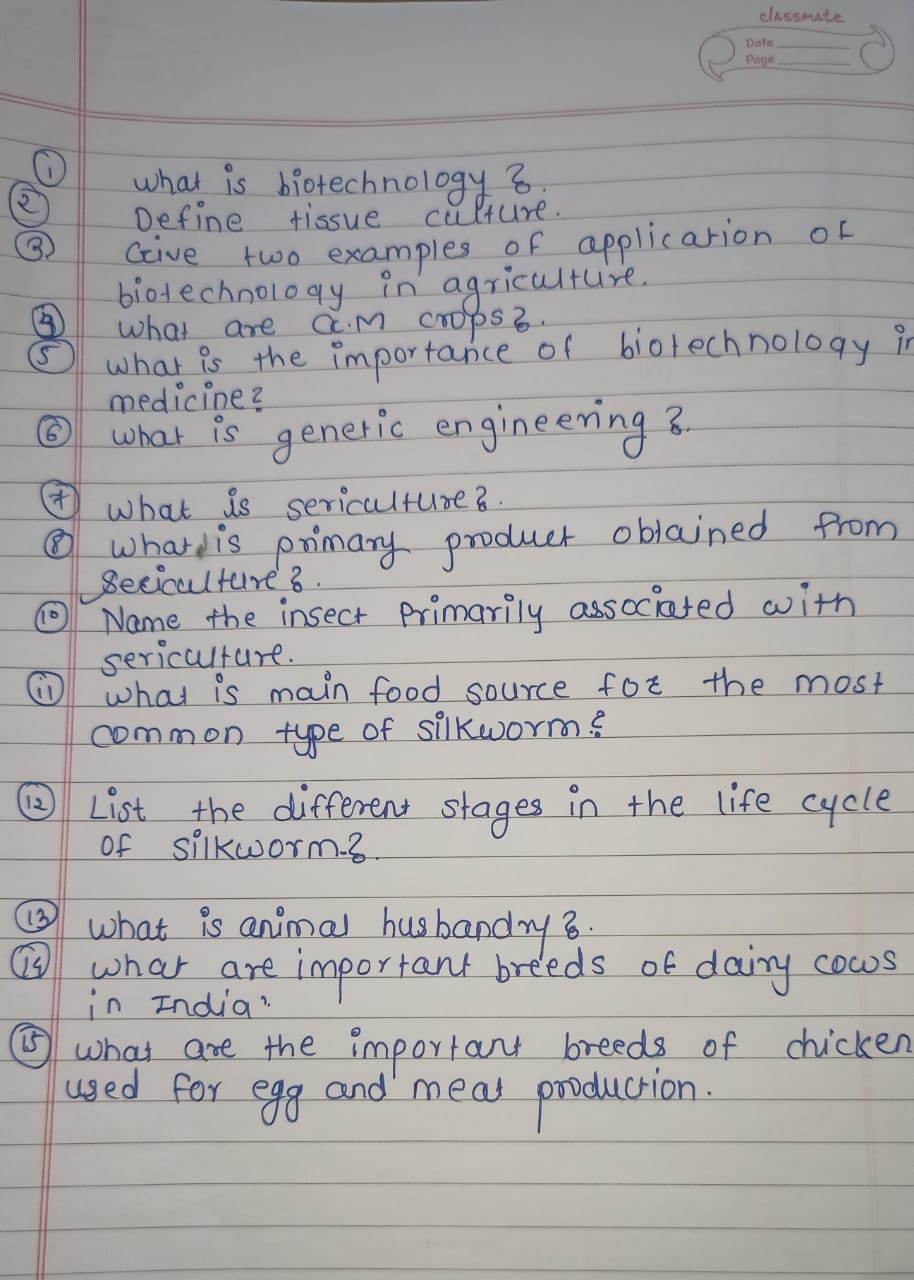 classmate
Date
Page
① what is biotechnology ?.
② Define tissue culture.
③ Give two examples of application of
biotechnology in agriculture.
④ what are G.M crops?.
⑤ what is the importance of biotechnology in
medicine?
⑥ what is genetic engineering ?.
⑦ what is sericulture?.
⑧ what is primary product obtained from
sericulture?.
⑩ Name the insect primarily associated with
sericulture.
⑪ what is main food source for the most
common type of silkworm?
⑫ List the different stages in the life cycle
of silkworm.?.
⑬ what is animal husbandry?.
⑭ what are important breeds of dairy cows
in India?
⑮ what are the important breeds of chicken
used for egg and meat production.